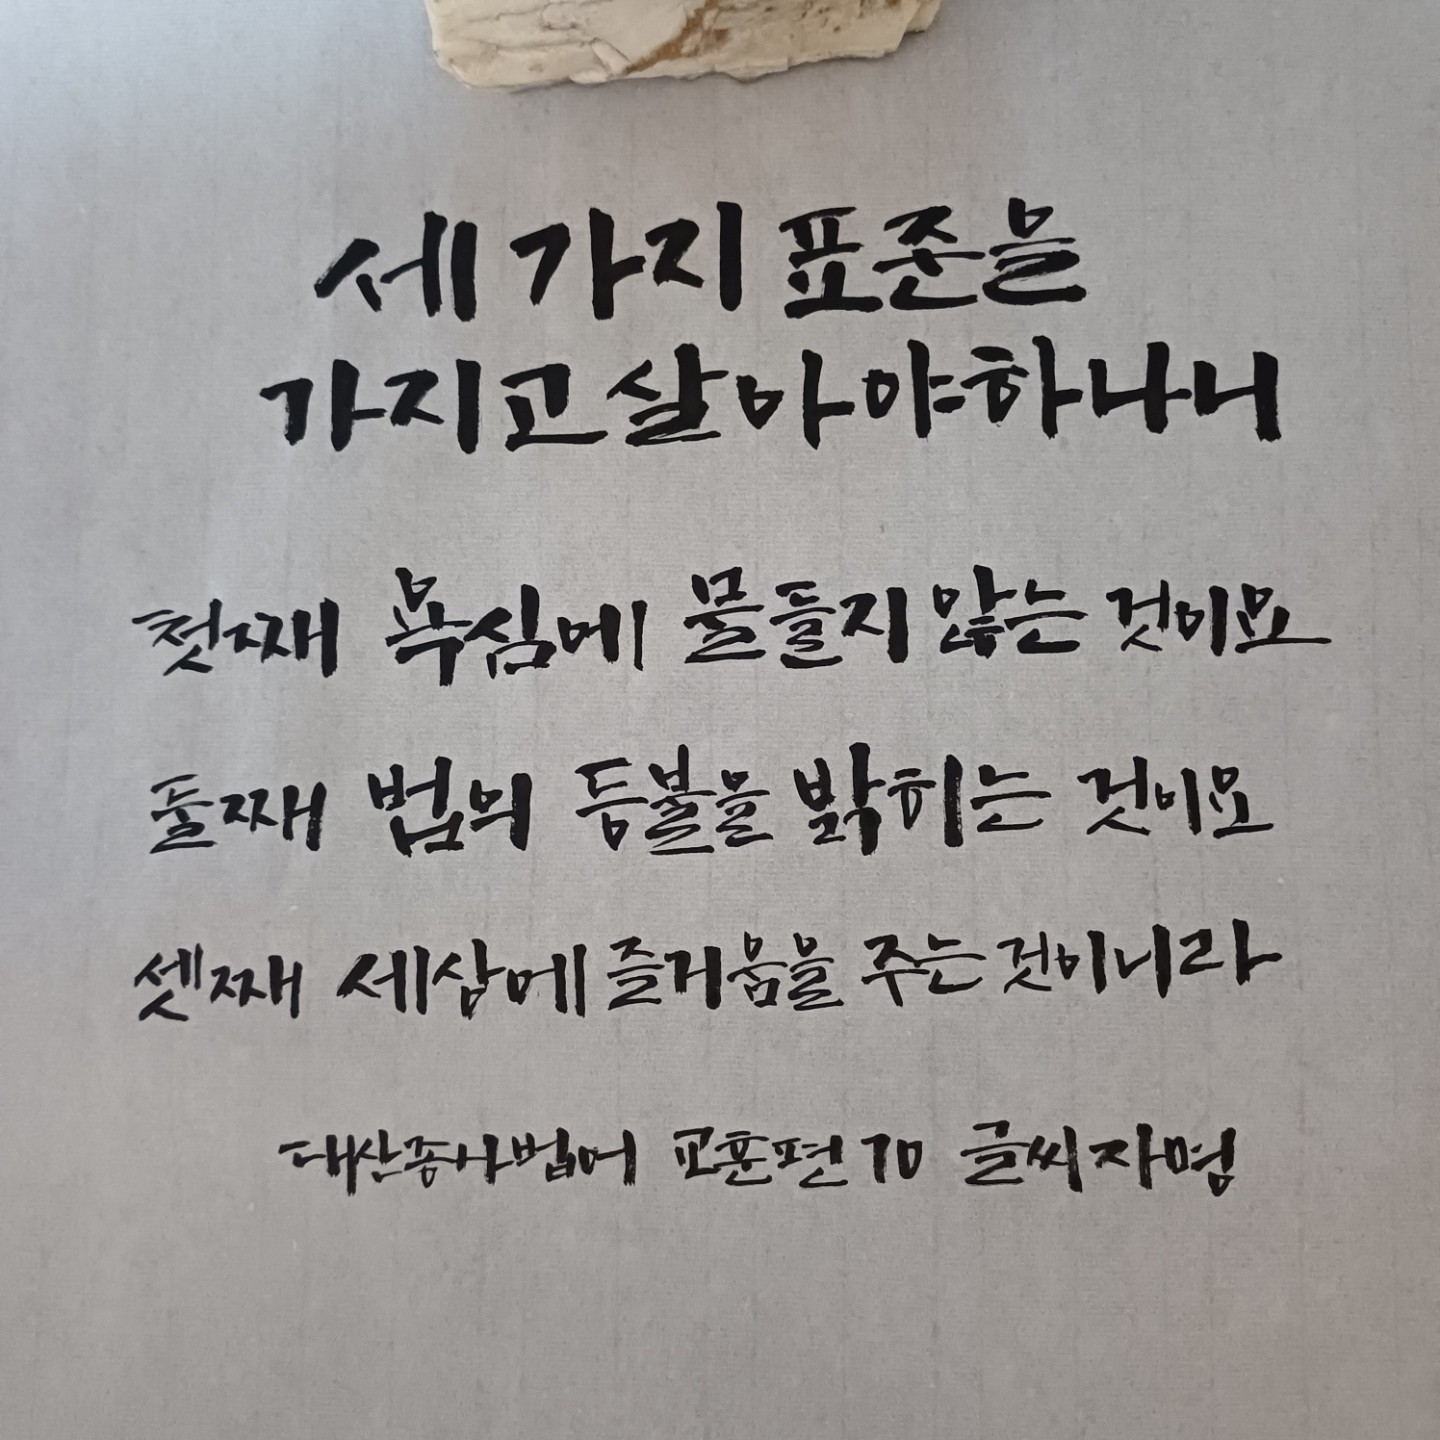 세 가지 표준을
가지고 살아야하나니
첫째 욕심에 물들지 않는 것이요
둘째 법의 등불을 밝히는 것이요
셋째 세상에 즐거움을 주는 것이니라
대산종사법어 교훈편 70 글씨 자명